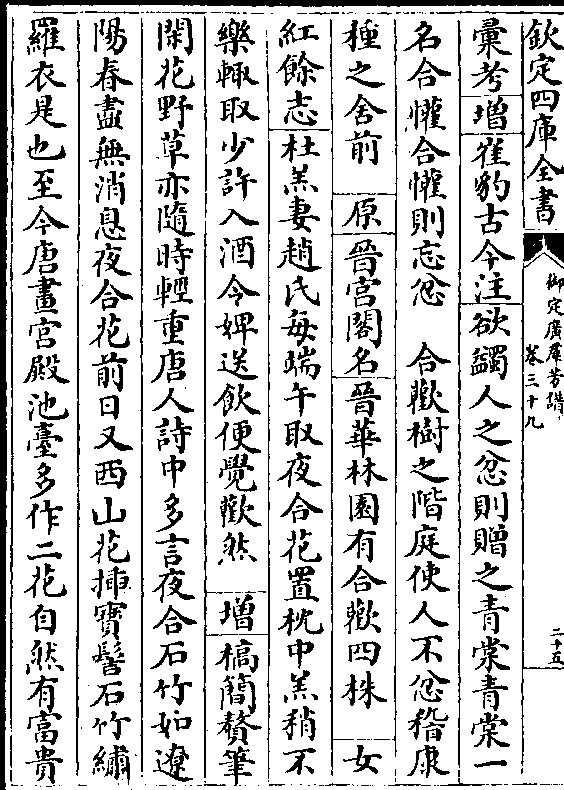 欽定四庫全書
御定廣羣芳譜
卷三十九
二十五
彙考增崔豹古今注欲蠲人之忿則贈之青棠青棠一
名合懽合懽則忘忿 合歡樹之階庭使人不忿嵇康
種之舍前 原晉宮閣名晉華林園有合歡四株 女
紅餘志杜羔妻趙氏每端午取夜合花置枕中羔稍不
樂輙取少許入酒令婢送飲便覺歡然 增槁簡贅筆
閑花野草亦隨時輕重唐人詩中多言夜合石竹如遼
陽春盡無消息夜合花前日又西山花揷寶髻石竹繡
羅衣是也至今唐畫宮殿池臺多作二花自然有富貴